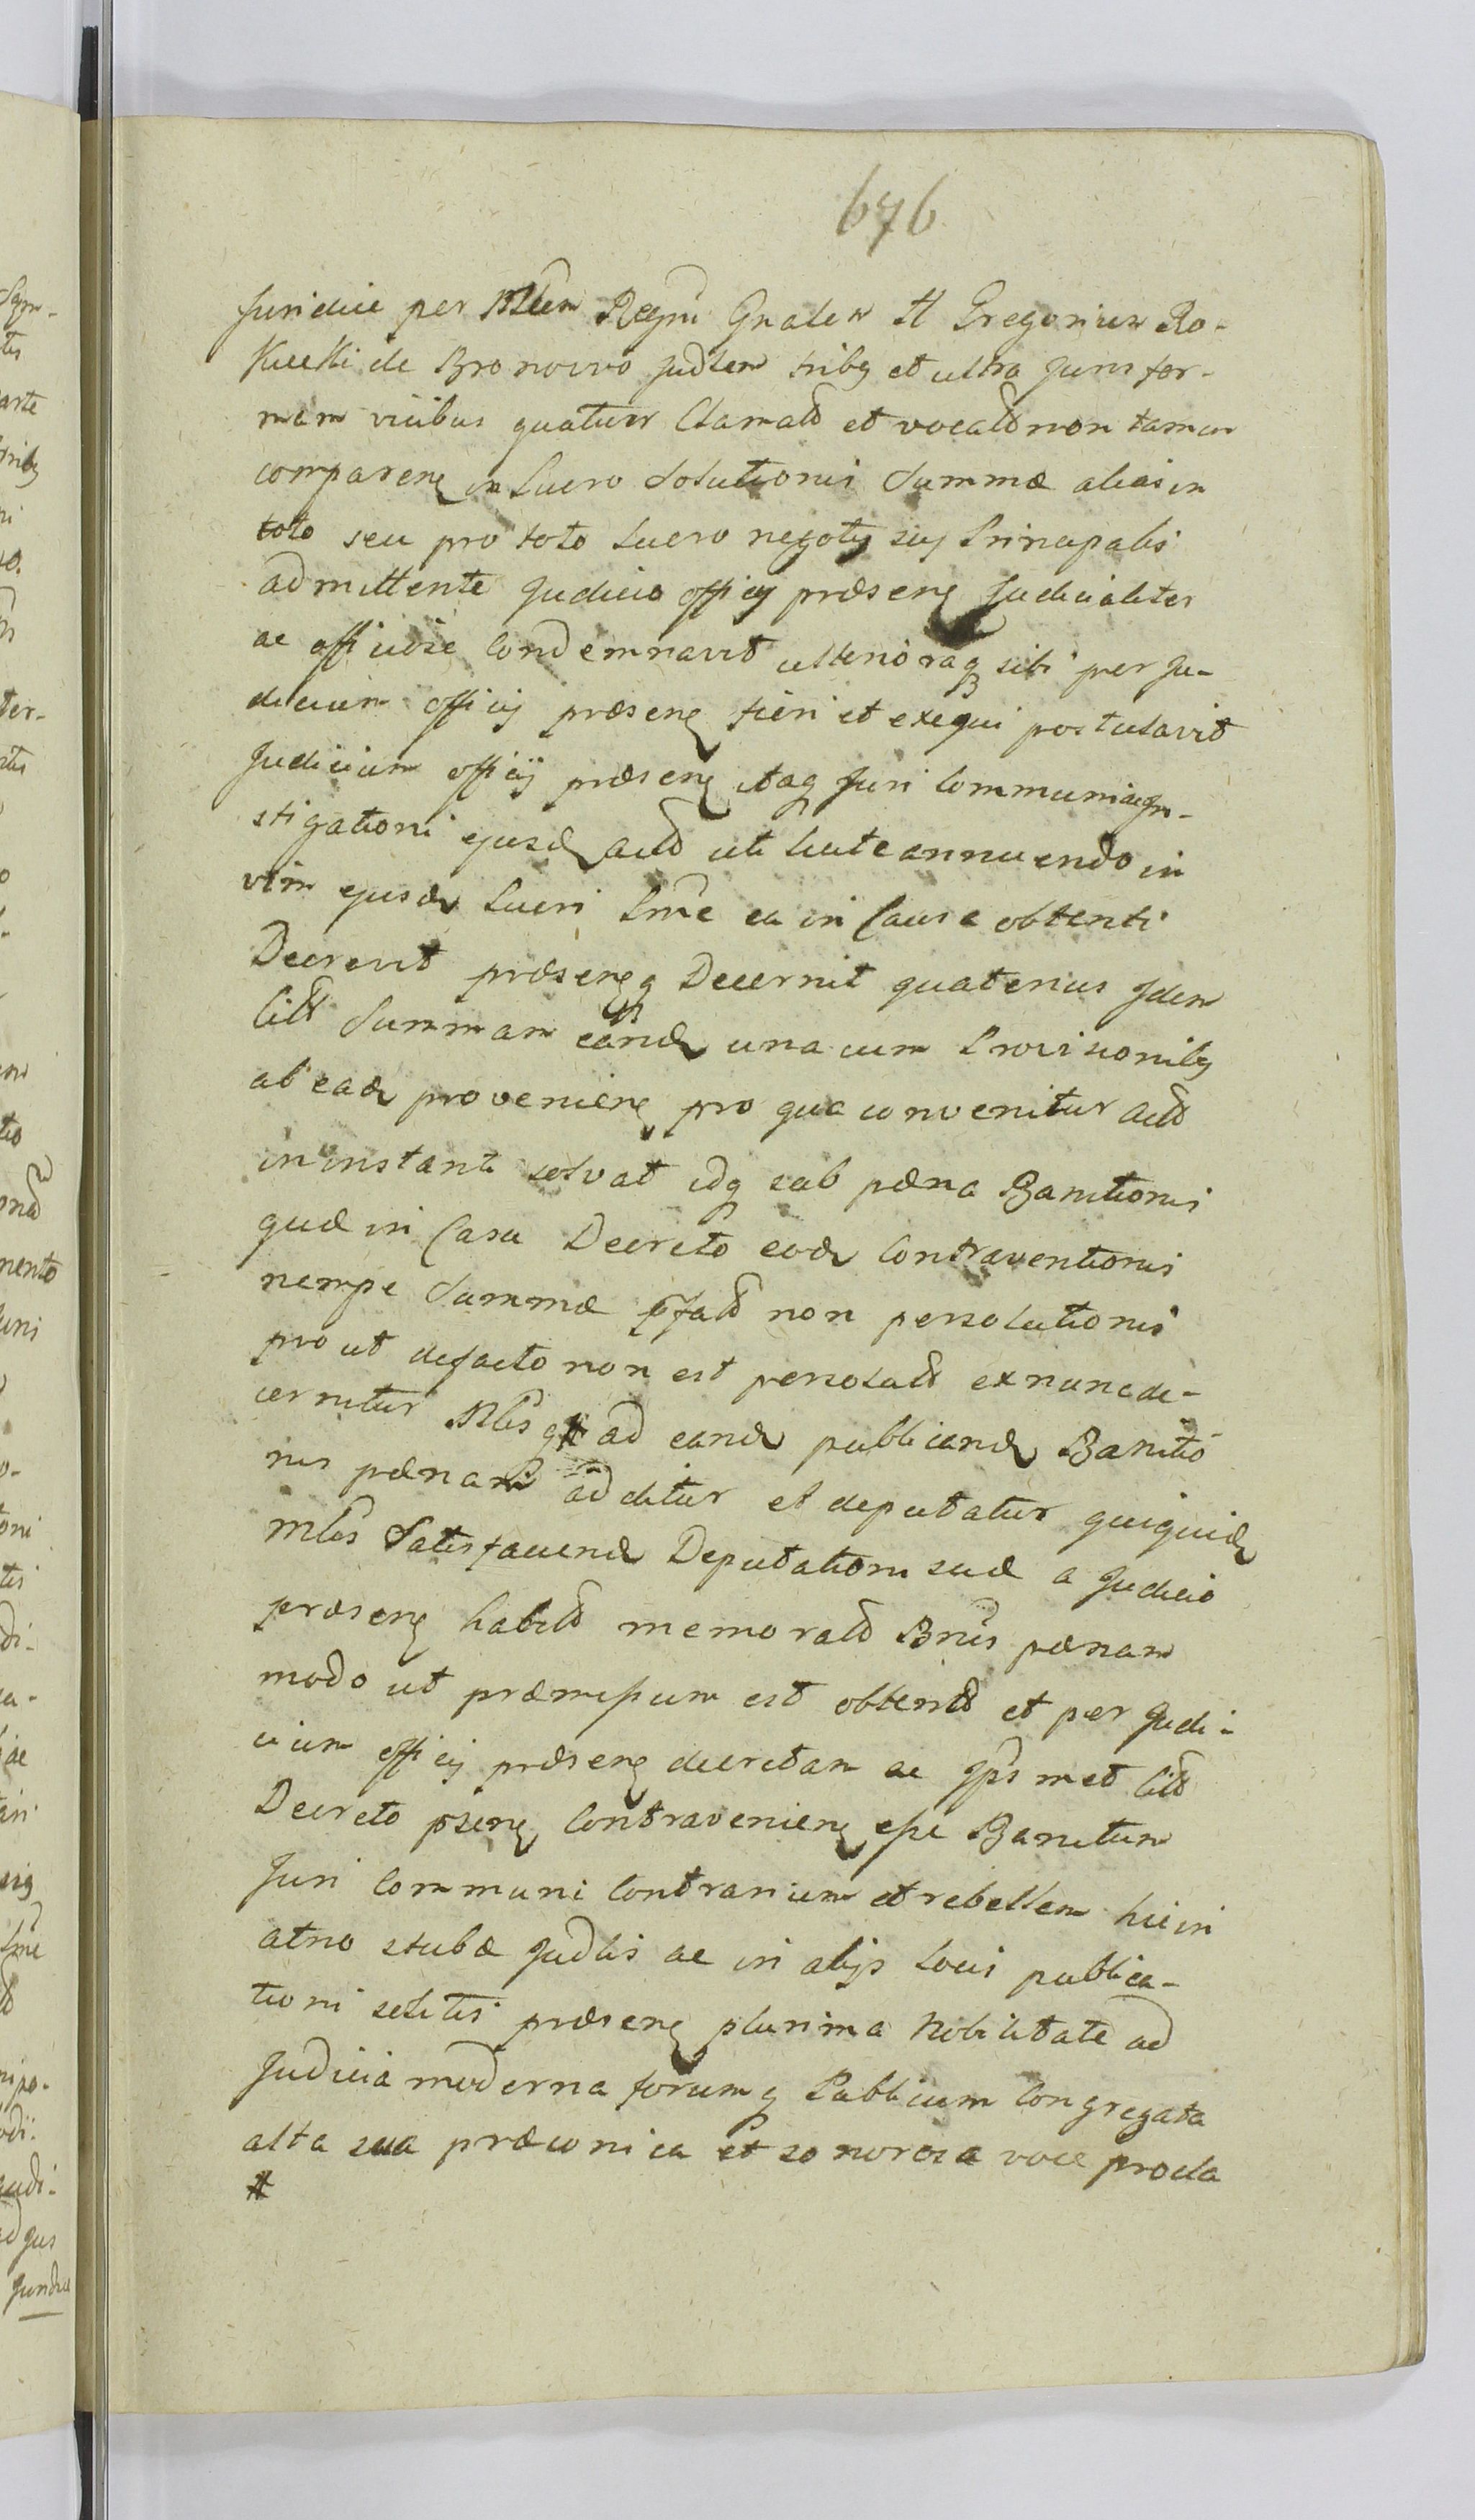 676
Juridice per Mlem Regni Gnalem H Gregorium Ro-
kicki de Bronowo Judlem tribq et ultra Juris for-
mam vicibus quatuor Clamatd et vocatd non tamen
comparenq in Lucro Solutionis Summæ alias in
toto seu pro toto Lucro negoty sij Principalis
admittente Judicio officij præsenq Judicialiter
ac officiose Condemnavit ulterioraq sibi per Ju-
dicium officij præsenq fieri et exequi postulavit
Judicium officij præsenq itaq Juri Communi ac In-
stigationi ejusd actd uti luite annuendo in
vim ejusd Lucri Pme ea in Causa obtenti
Decrevit præsenqq Decernit quatenus Idem
Citd Summam eand una cum Provisionibq
ab ead provenienq pro qua convenitur actd
in instanti solvat idq sub pæna Banitionis
quæ in Casu Decreto eod Contraventionis
nempe Summæ pfatd non persolutionis
prout defacto non est persolutd ex nunc de-
cernitur Mlsq # ad eand publicand Banitio
nis pænam additur et deputatur quiquid
Mlis Satisfaciend Deputationi suæ a Judicio
præsenq habitd memoratd Bnis pænam
modo ut præmissum est obtentd et per Judi-
cium officij præsenq decretam ac Ipsmet Citd
Decreto psenq Contravenienq esse Banitum
Juri Communi Contrarium et rebellem hic in
atrio stubæ Judlis ac in alijs Locis publica-
tioni solitis præsenq plurima Nobilitate ad
Judicia moderna forumq Publicum Congregata
alta sua præconica et sonorosa voce procla
#